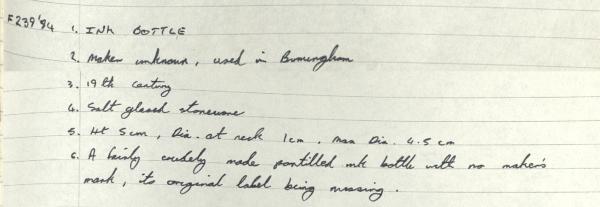 F239'94 1. INK BOTTLE
2. Maker unknown, used in Birmingham
3. 19th Century
4. Salt glazed stoneware
5. Ht 5cm, Dia. at neck 1cm, Max Dia. 4.5 cm
6. A fairly crudely made pontilled ink bottle with no maker's
mark, its original label being missing.